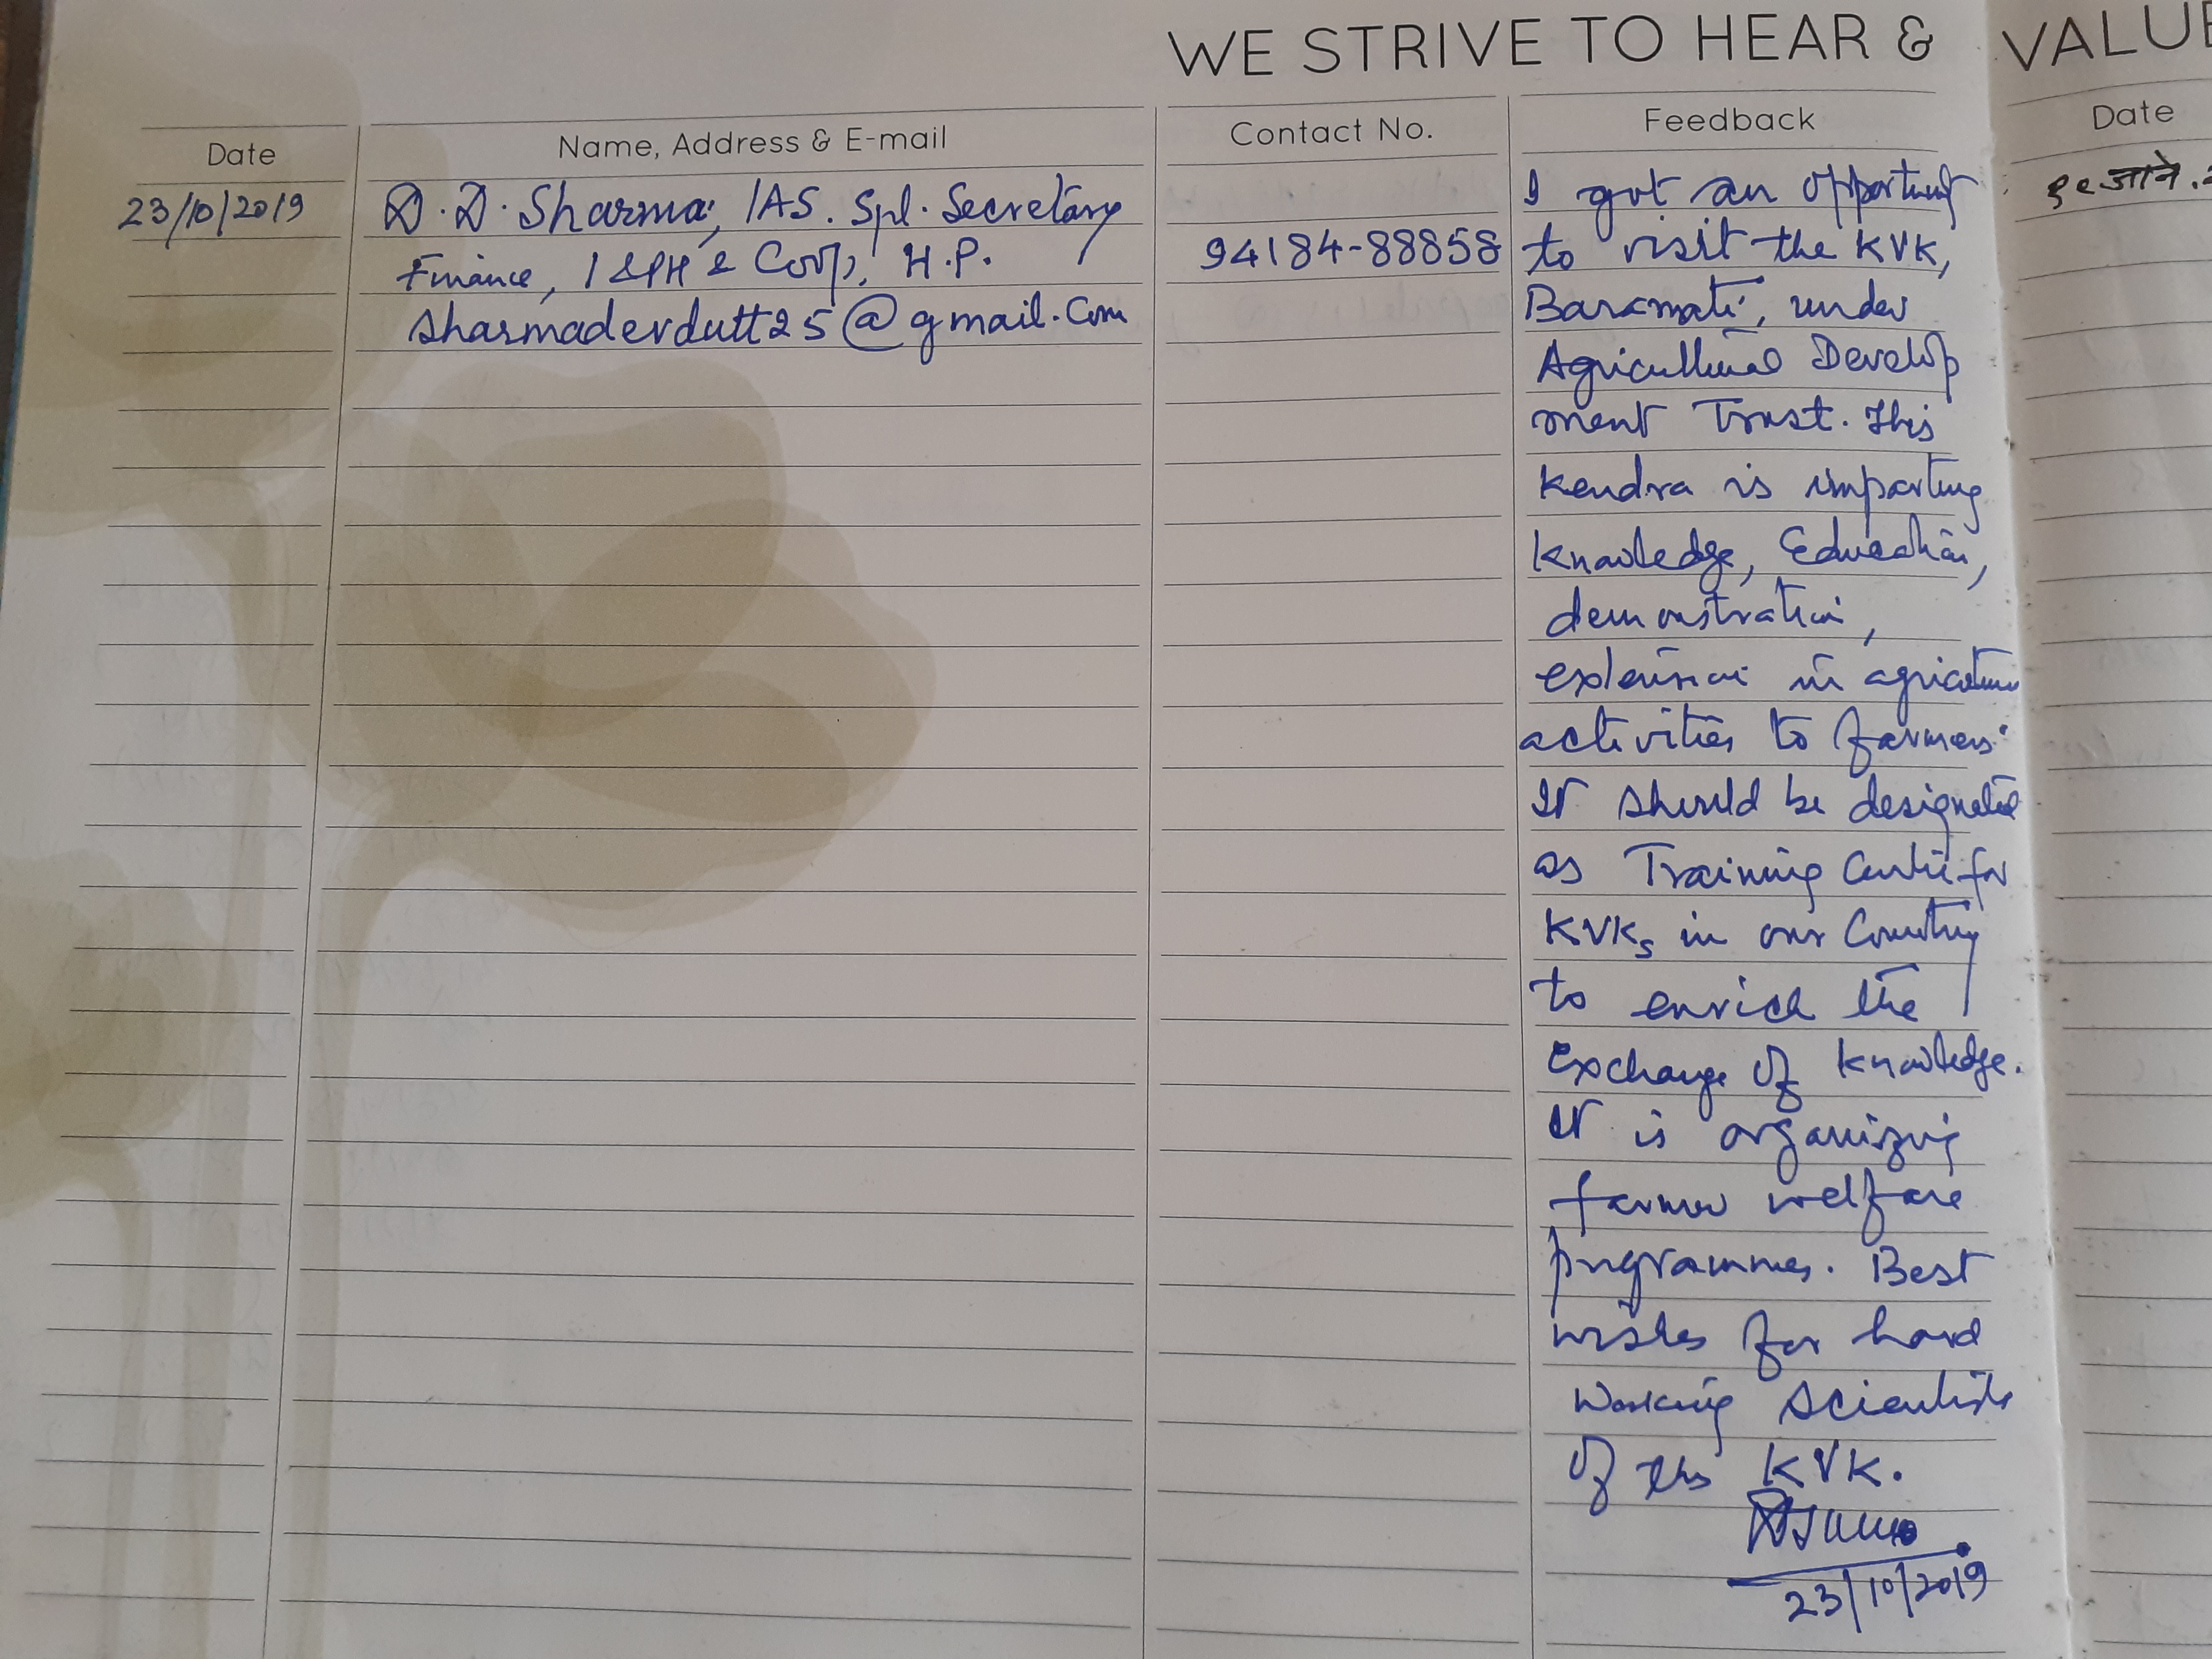 WE STRIVE TO HEAR & VALUE
Date Name, Address & E-mail Contact No. Feedback Date
23/10/2019
D. D. Sharma, IAS. Spl. Secretary
Finance, I & PH & Coop, H.P.
sharmadevdutt25@gmail.com
94184-88858
I got an opportunity
to visit the KVK,
Baramati, under
Agricultural Develop
ment Trust. This
Kendra is imparting
knowledge, Education,
demonstration,
extension in agriculture
activities to farmers.
It should be designated
as Training Centre for
KVKs in our Country
to enrich the
Exchange of knowledge.
It is organizing
farmer welfare
programmes. Best
wishes for hard
working scientists
of this KVK.
23/10/2019